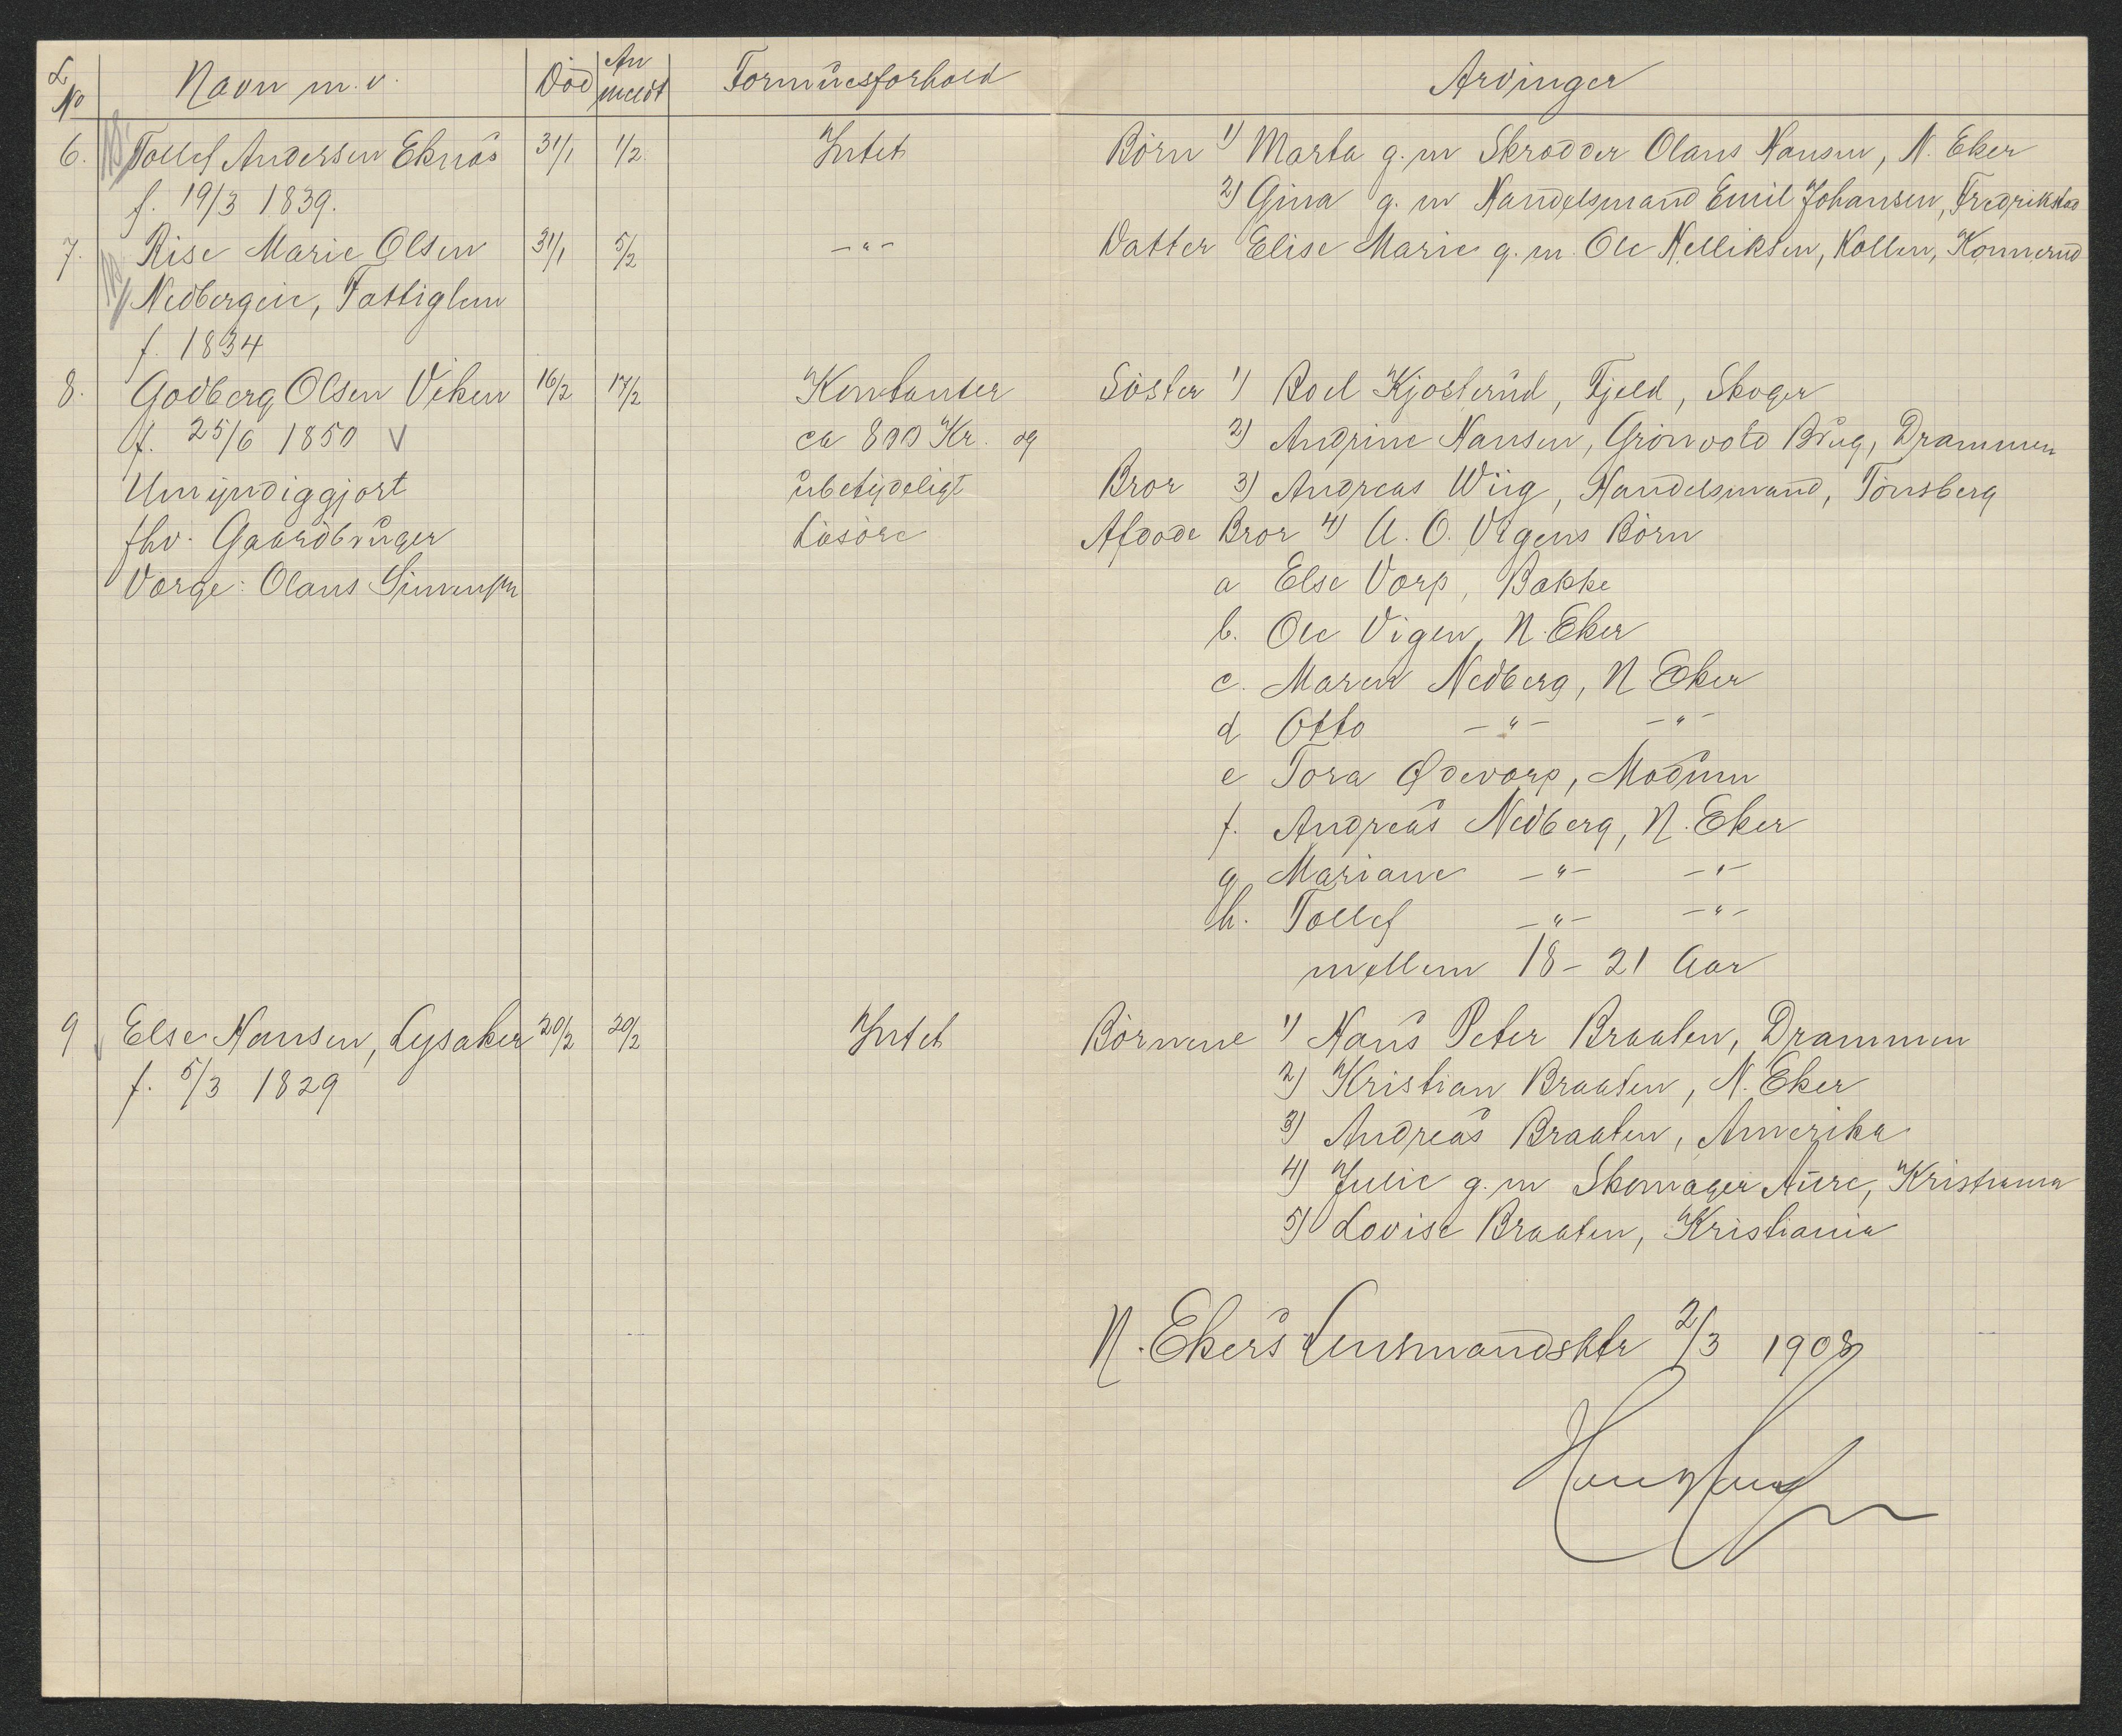 L. No Navn m.v. Död An meldt Formuesforhold Arvinger
6. Tollef Andersen Eknäs 31/1 1/2 Intet Börn 1) Marta g. m Skrædder Olaus Hansen, N. Eker
f. 19/3 1839. 2) Gina g. m Handelsmand Emil Johansen, Fredrikstad
7. Rise Marie Olsen 31/1 5/2 -"- Datter Elise Marie g. m. Ole Helliksen, Kollen, Konnerud
Nedbergeie, Fattiglem
f. 1834
8. Godberg Olsen Viken 16/2 17/2 Kontanter Söster 1) Boel Kjösterud, Fjeld, Skoger
f. 25/6 1850 V ca 800 Kr. og 2) Andrine Hansen, Grönvold Brug, Drammen
Umyndiggjort ubetydeligt Bror 3) Andreas Wiig, Handelsmand, Tönsberg
fhv. Gaardbruger Lösöre Afdöde Bror 4) A. O. Vigens Börn
Værge: Olaus Simensen a Else Vorp, Bakke
b. Ole Vigen, N. Eker
c. Maren Nedberg, N. Eker
d Otto -"- -"-
e Tora Ødevorp, Modum
f. Andreas Nedberg, N. Eker
g Mariane -"- -"-
h. Tollef -"- -"-
mellem 18 - 21 Aar
9 Else Hansen, Lysaker 20/2 20/2 Intet Börnene 1) Hans Peter Braaten, Drammen
f. 5/3 1829 2) Kristian Braaten, N. Eker
3) Andreas Braaten, Amerika
4) Julie g. m Skomager Aure, Kristiania
5) Lovise Braaten, Kristiania
N. Ekers Lensmandsktr 2/3 1908